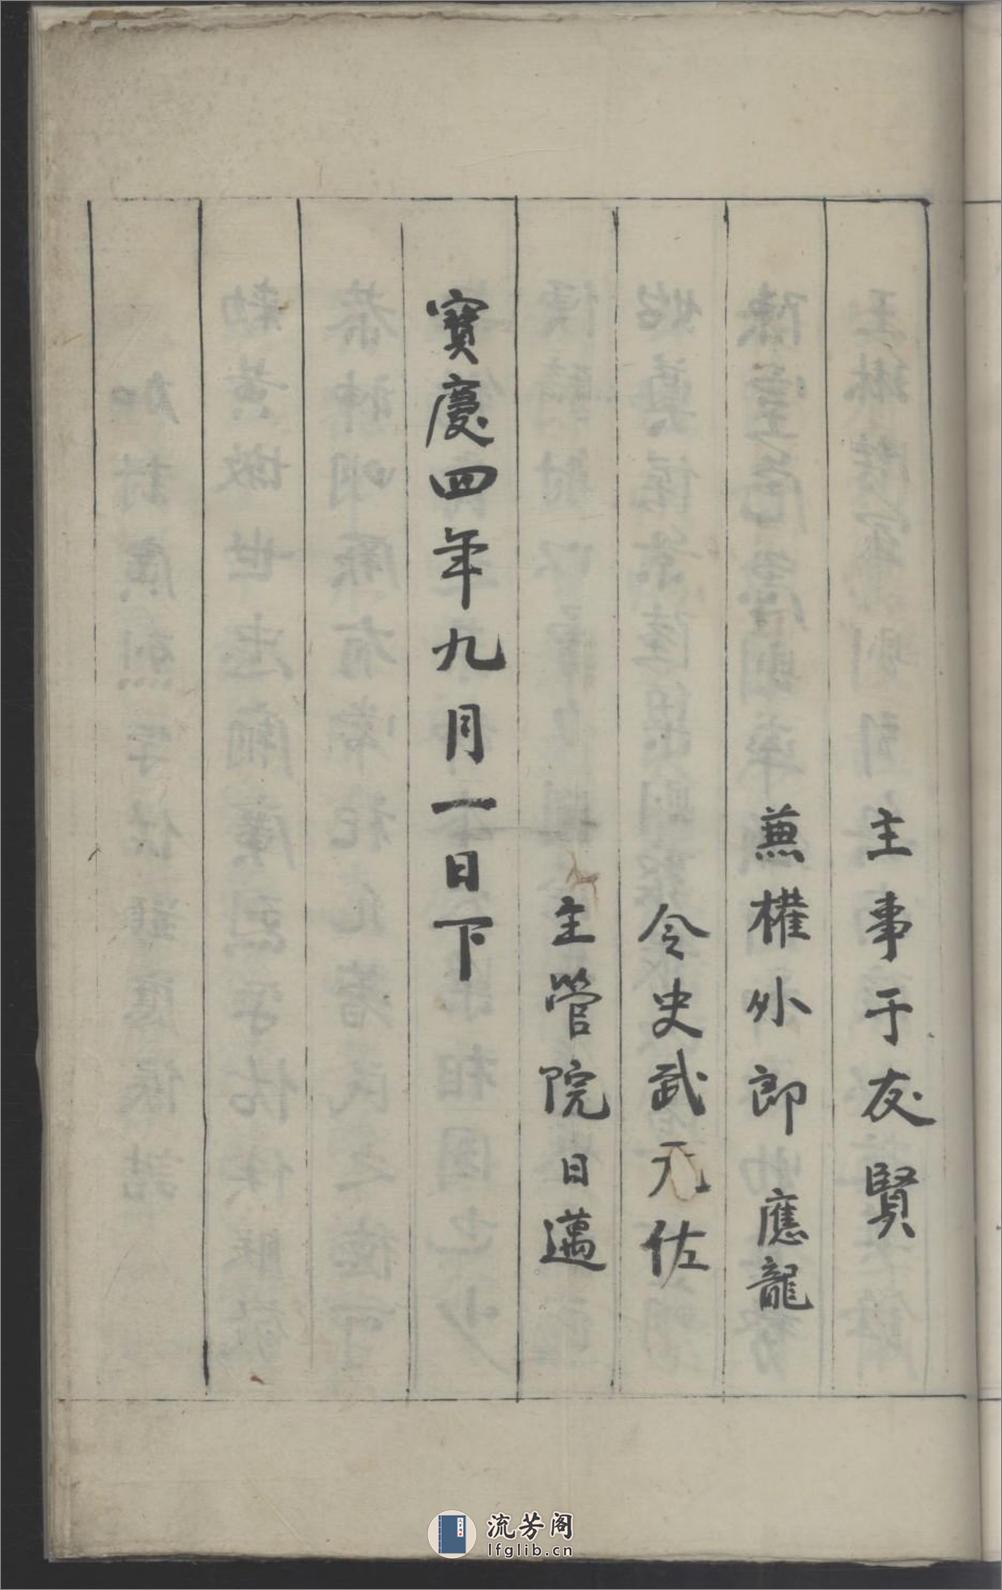 主事于友賢
兼權外郎應龍
令史武元佐
主管院日邁
寳慶四年九月一日下
流芳阁
lfglib.cn